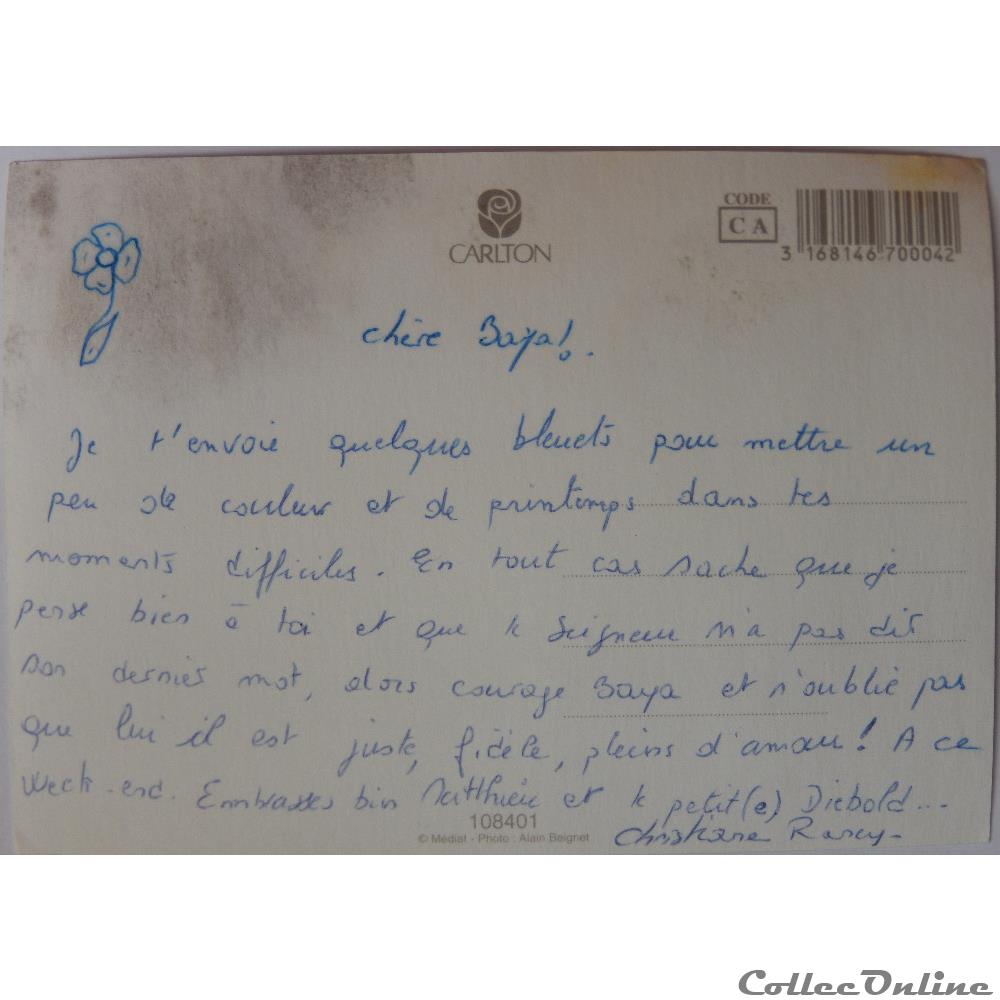 CARLTON
CODE
CA
3 168146 700042
chère Baya!.
Je t'envoie quelques bleuets pour mettre un
peu de couleur et de printemps dans tes
moments difficiles. En tout cas sache que je
pense bien à toi et que le Seigneur n'a pas dit
son dernier mot, alors courage Baya et n'oublie pas
que lui il est juste, fidèle, pleins d'amour! A ce
Week-end. Embrasses bien Matthieu et le petit(e) Diebold...
Christiane
108401
© Médiat - Photo : Alain Beignet
CollecOnline